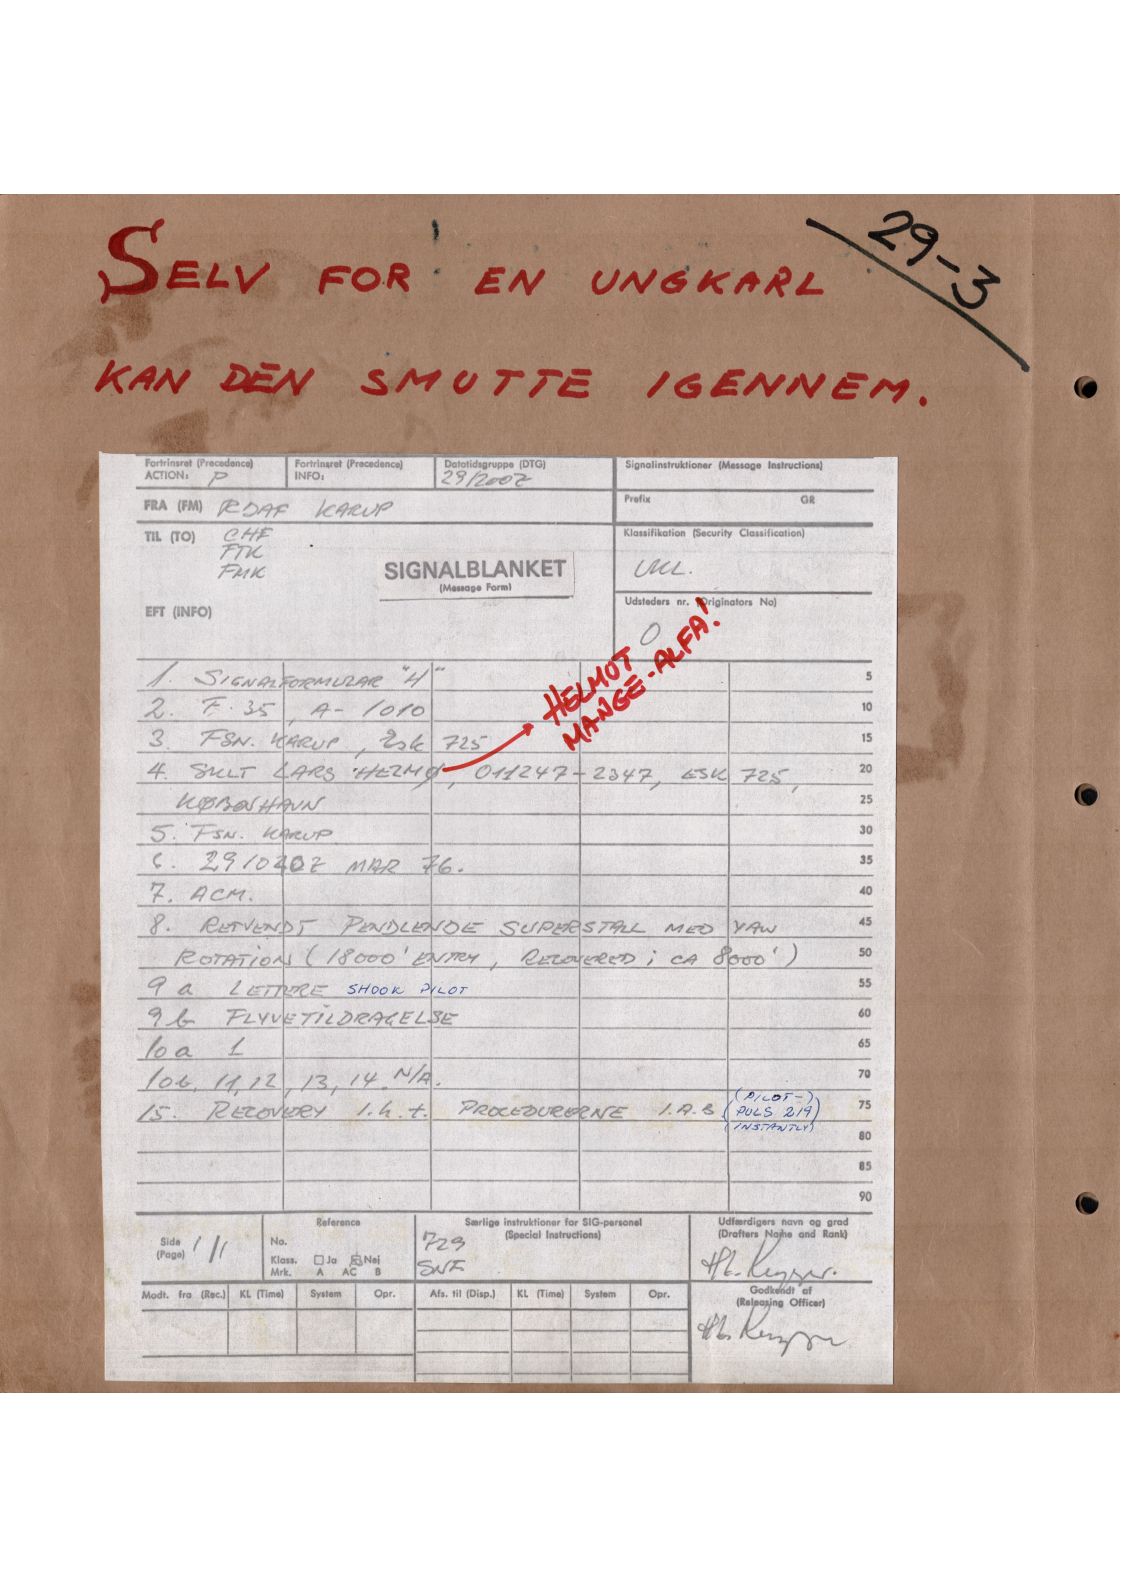 29-3
SELV FOR EN UNGKARL
KAN DEN SMUTTE IGENNEM.
Fortrinsret (Precedence)
ACTION: P
Fortrinsret (Precedence)
INFO:
Datotidsgruppe (DTG)
29/200Z
Signalinstruktioner (Message Instructions)
FRA (FM) RDAF KARUP
Prefix GR
TIL (TO) CHF
FTK
FMK
Klassifikation (Security Classification)
UKL.
SIGNALBLANKET
(Message Form)
EFT (INFO)
Udsteders nr. (Originators No)
O
HELMUT
MANGE-ALFA!
1. SIGNALFORMULAR "H" 5
2. F-35, A-1010 10
3. FSN. KARUP, Esk 725 15
4. SKLT LARS HELMØ, 011247-2347, ESK 725, 20
KØBENHAVN 25
5. FSN. KARUP 30
6. 291020Z MAR 76. 35
7. ACM. 40
8. RETVENDT PENDLENDE SUPERSTALL MED YAW 45
ROTATION (18000' ENTRY, RECOVERED i CA 8000') 50
9a LETTERE SHOOK PILOT 55
9b FLYVETILDRAGELSE 60
10a 1 65
10b, 11, 12, 13, 14. N/A. 70
15. RECOVERY I.h.t. PROCEDURERNE I.A.B (PILOT-PULS 219 INSTANTLY) 75
80
85
90
Side
(Page) 1/1
Reference
No.
Klass. Ja Nej
Mrk. A AC B
Særlige instruktioner for SIG-personel
(Special Instructions)
729
SNF
Udfærdigers navn og grad
(Drafters Name and Rank)
Godkendt af
(Releasing Officer)
Modt. fra (Rec.) KL (Time) System Opr. Afs. til (Disp.) KL (Time) System Opr.